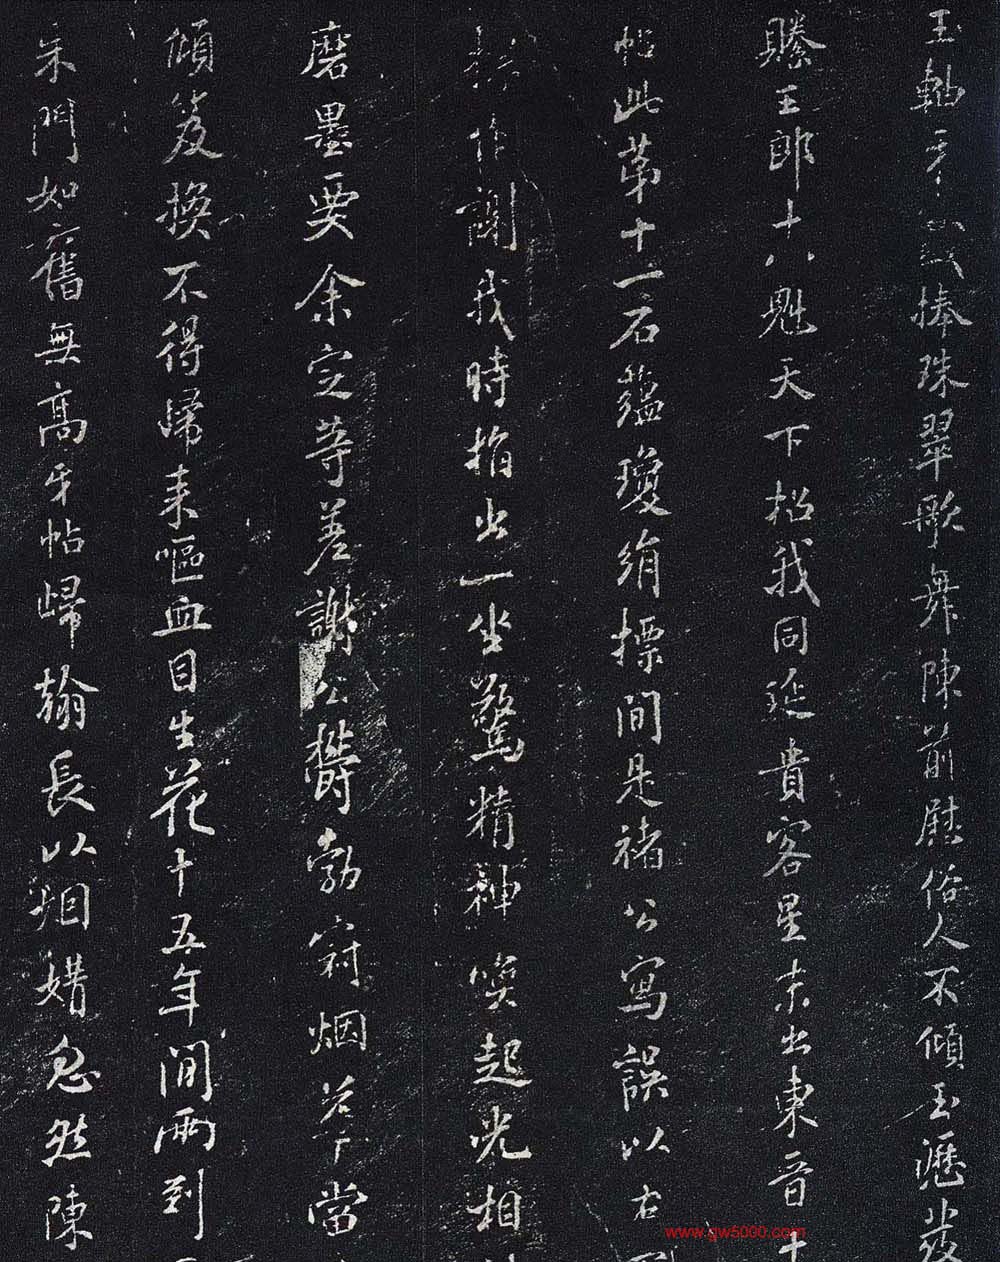 玉軸捧珠翠歌舞陳前慰俗人不傾玉瀝發
賺王郎十八魁天下招我同延貴客星未出東晉十
帖此第十一石蘊瓊絹摽間是褚公寫誤以右
作謝我時指出一坐驚精神喚起光相
磨墨要余定等差謝公鬱勃窮烟當
傾笈換不得歸来嘔血目生花十五年間兩到
朱門如舊無高牙帖歸翰長以姻媾忽然陳
www.gw5000.com